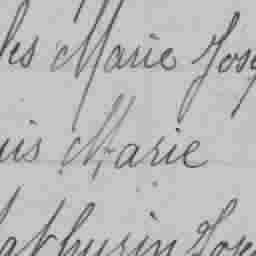 les Marie Jos
uis Marie
athurin Jos